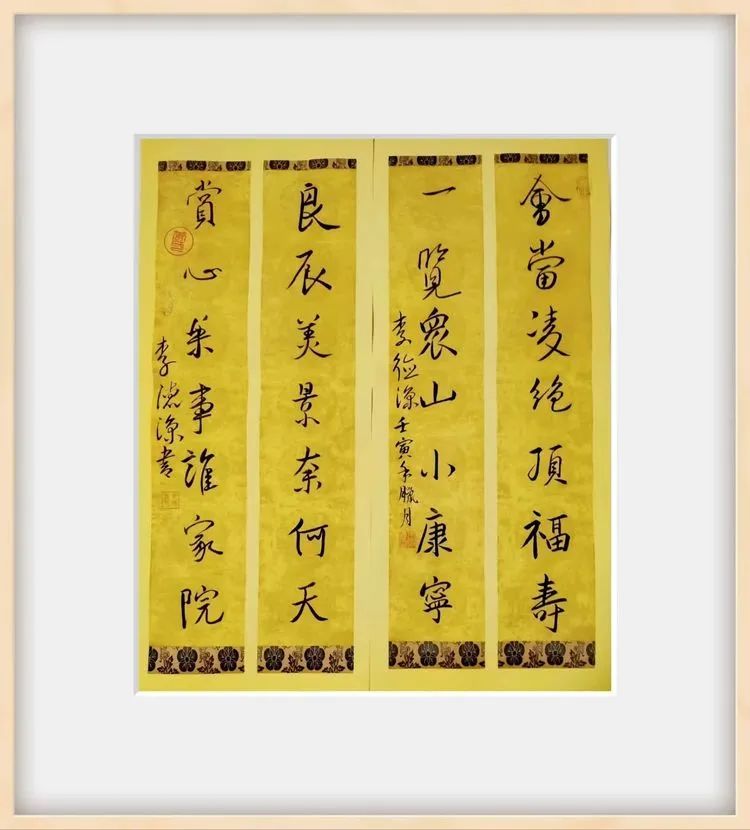 會當凌絕頂福壽
一覽衆山小康寧
李德深壬寅年臘月
良辰美景奈何天
賞心樂事誰家院
李德深書